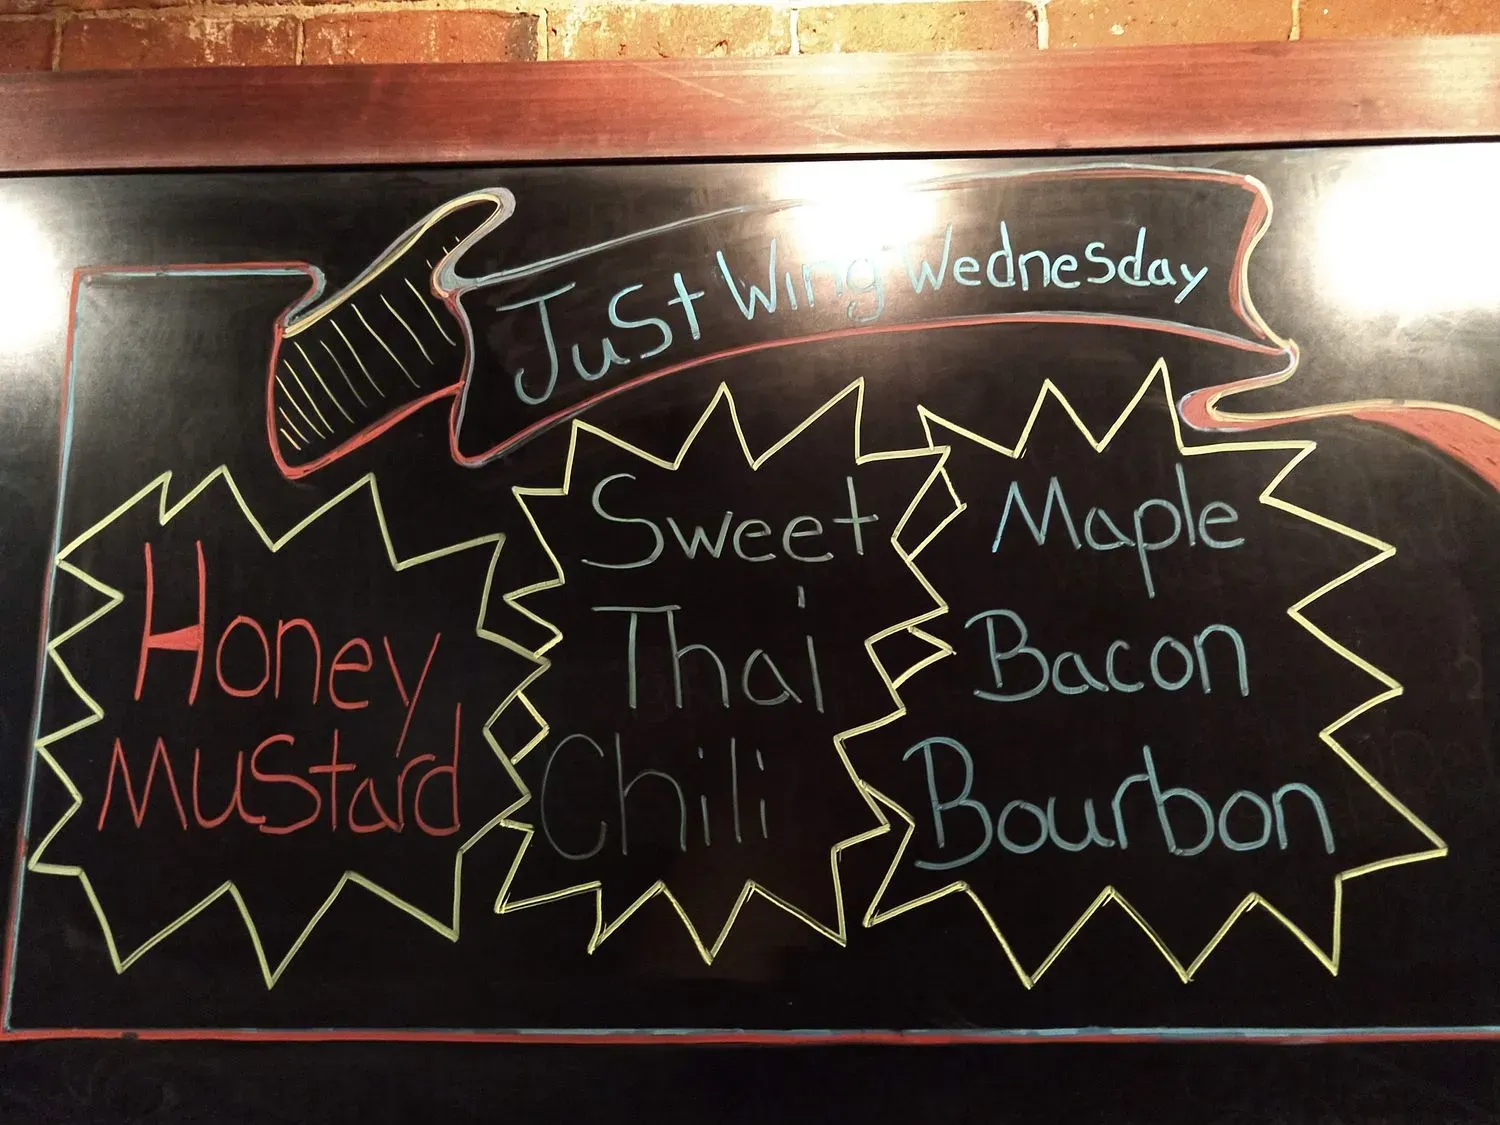 Just Wing Wednesday
Honey
Mustard
Sweet
Thai
Chili
Maple
Bacon
Bourbon